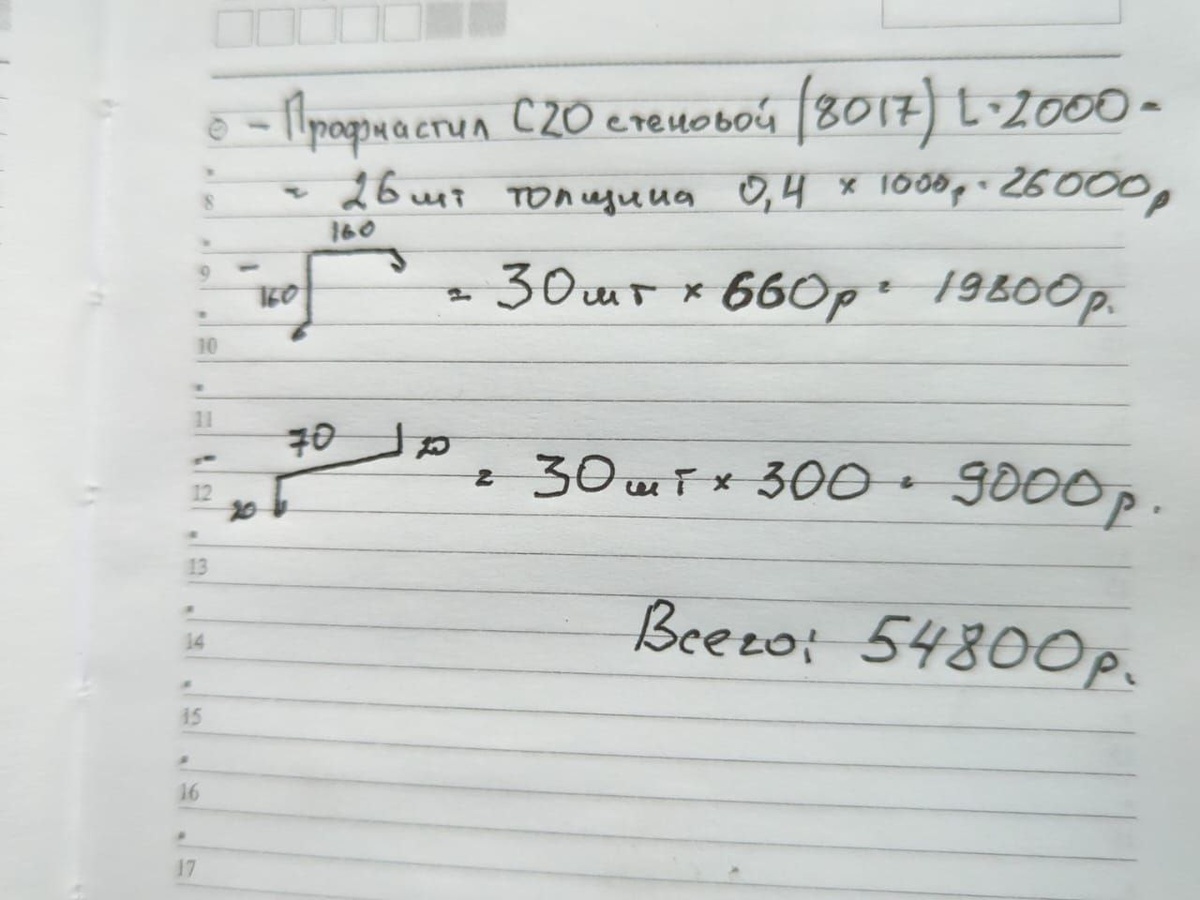 - Профнастил С20 стеновой (8017) L=2000 =
= 26 шт толщина 0,4 × 1000р = 26000р
8
160
9
- 160 = 30 шт × 660р = 19800р.
10
11
70 20 = 30 шт × 300 = 9000р.
12
20
13
Всего: 54800р.
14
15
16
17